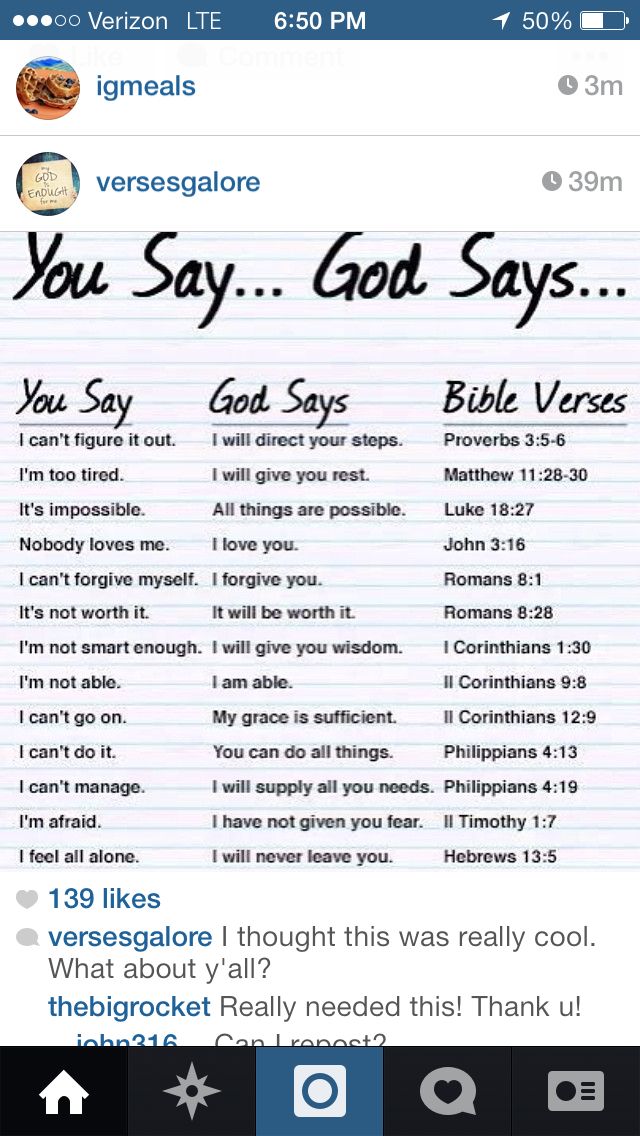 Verizon LTE 6:50 PM 50%
Like Comment
igmeals 3m
my GOD is ENOUGH for me
versesgalore 39m
You Say... God Says...
You Say God Says Bible Verses
I can't figure it out. I will direct your steps. Proverbs 3:5-6
I'm too tired. I will give you rest. Matthew 11:28-30
It's impossible. All things are possible. Luke 18:27
Nobody loves me. I love you. John 3:16
I can't forgive myself. I forgive you. Romans 8:1
It's not worth it. It will be worth it. Romans 8:28
I'm not smart enough. I will give you wisdom. I Corinthians 1:30
I'm not able. I am able. II Corinthians 9:8
I can't go on. My grace is sufficient. II Corinthians 12:9
I can't do it. You can do all things. Philippians 4:13
I can't manage. I will supply all you needs. Philippians 4:19
I'm afraid. I have not given you fear. II Timothy 1:7
I feel all alone. I will never leave you. Hebrews 13:5
139 likes
versesgalore I thought this was really cool.
What about y'all?
thebigrocket Really needed this! Thank u!
__john316__ Can I repost?